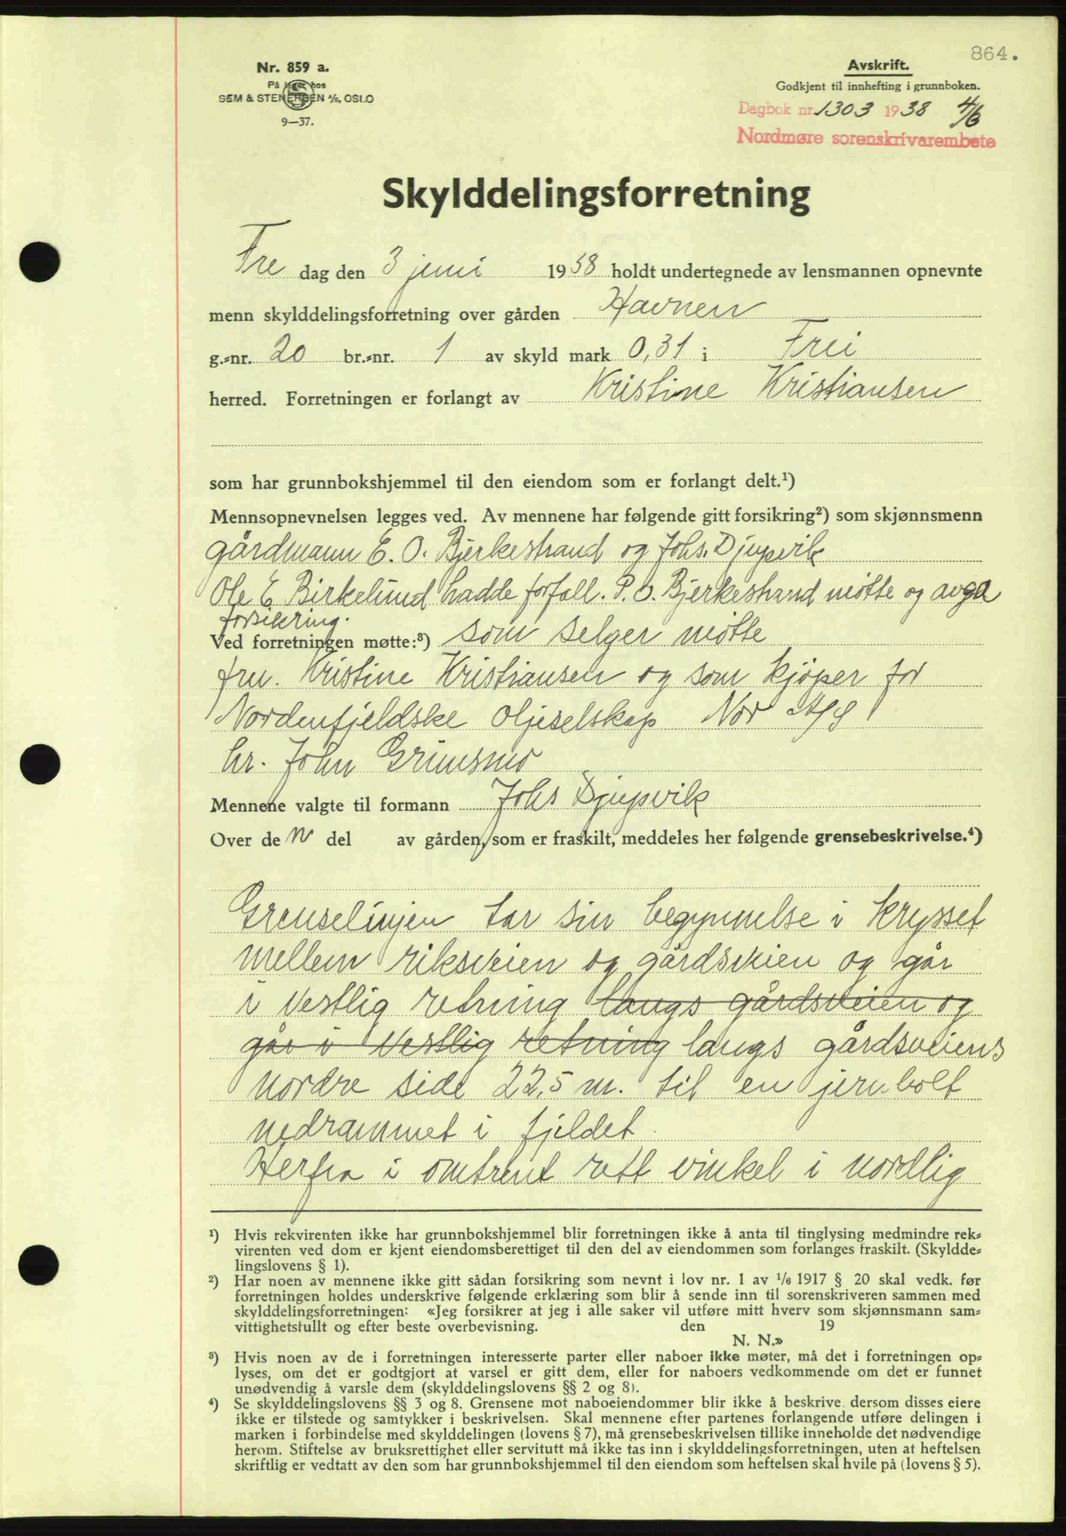 864.
Nr. 859 a.
På lager hos
SEM & STENERSEN A/S, OSLO
9—37.
Avskrift.
Godkjent til innhefting i grunnboken.
Dagbok nr. 1303 1938 4/6
Nordmøre sorenskrivarembete
Skylddelingsforretning
Fre dag den 3 juni 1938 holdt undertegnede av lensmannen opnevnte
menn skylddelingsforretning over gården Havnen
g.-nr. 20 br.-nr. 1 av skyld mark 0,31 i Frei
herred. Forretningen er forlangt av Kristine Kristiansen
som har grunnbokshjemmel til den eiendom som er forlangt delt.¹)
Mennsopnevnelsen legges ved. Av mennene har følgende gitt forsikring²) som skjønnsmenn
gårdmann E. O. Bjerkestrand og Johs. Djupvik
Ole E. Birkelund hadde forfall. P. O. Bjerkestrand møtte og avga
forsikring.
Ved forretningen møtte:³) som selger møtte
fru. Kristine Kristiansen og som kjøper for
Nordenfjeldske Oljeselskap Nor A/S
hr. John Grimsmo
Mennene valgte til formann Johs Djupvik
Over de N del av gården, som er fraskilt, meddeles her følgende grensebeskrivelse.⁴)
Grenselinjen tar sin begynnelse i krysset
mellem riksveien og gårdsveien og går
i vestlig retning langs gårdsveien og
går i vestlig retning langs gårdsveiens
nordre side 22,5 m. til en jernbolt
nedrammet i fjeldet.
Herfra i omtrent rett vinkel i nordlig
¹) Hvis rekvirenten ikke har grunnbokshjemmel blir forretningen ikke å anta til tinglysing medmindre rek-
virenten ved dom er kjent eiendomsberettiget til den del av eiendommen som forlanges fraskilt. (Skyldde-
lingslovens § 1).
²) Har noen av mennene ikke gitt sådan forsikring som nevnt i lov nr. 1 av 1/6 1917 § 20 skal vedk. før
forretningen holdes underskrive følgende erklæring som blir å sende inn til sorenskriveren sammen med
skylddelingsforretningen: «Jeg forsikrer at jeg i alle saker vil utføre mitt hverv som skjønnsmann sam-
vittighetsfullt og efter beste overbevisning. den 19
N. N.»
³) Hvis noen av de i forretningen interesserte parter eller naboer ikke møter, må det i forretningen op-
lyses, om det er godtgjort at varsel er gitt dem, eller for naboers vedkommende om det er funnet
unødvendig å varsle dem (skylddelingslovens §§ 2 og 8).
⁴) Se skylddelingslovens §§ 3 og 8. Grensene mot naboeiendommer blir ikke å beskrive, dersom disses eiere
ikke er tilstede og samtykker i beskrivelsen. Skal mennene efter partenes forlangende utføre delingen i
marken i forbindelse med skylddelingen (lovens § 7), må grensebeskrivelsen tillike inneholde det nødvendige
herom. Stiftelse av bruksrettighet eller servitutt må ikke tas inn i skylddelingsforretningen, uten at heftelsen
skriftlig er vedtatt av den som har grunnbokshjemmel til den eiendom som heftelsen skal hvile på (lovens § 5).